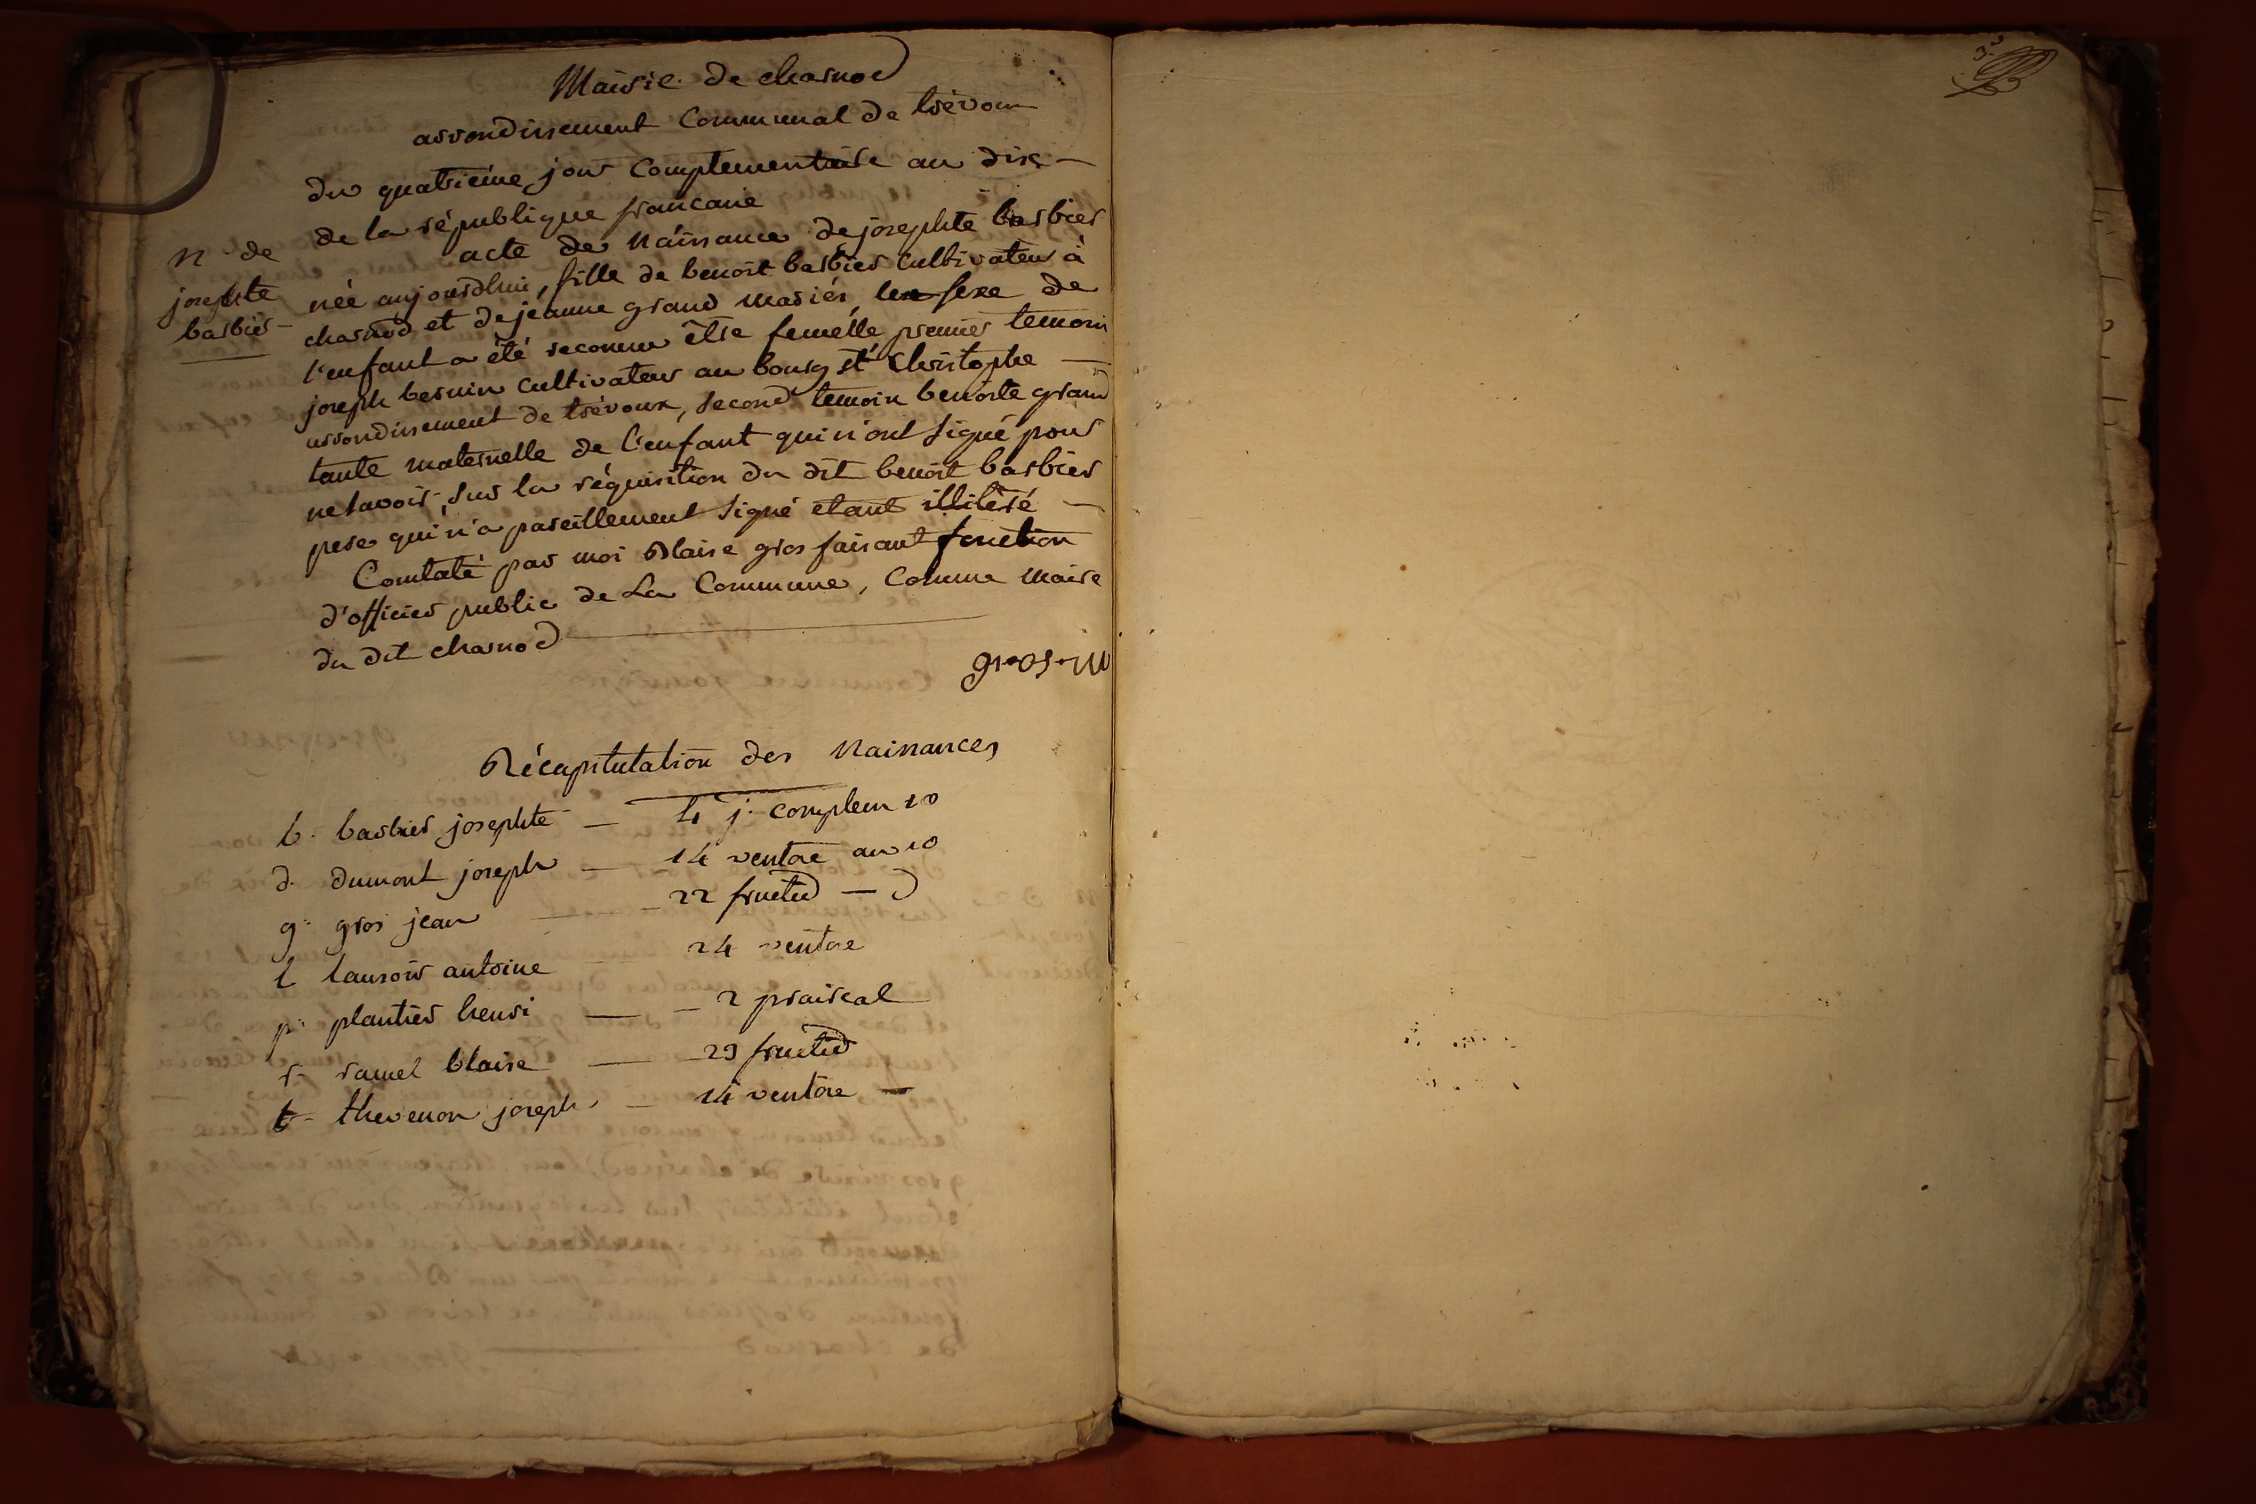 Mairie de charnod
arrondissement Communal de trévoux
du quatrième jour Complementaire an dix
de la république francaise
acte de Naissance de josephte barbier
N. de
josephte
barbier
née aujourdhui, fille de benoit barbier Cultivateur à
charnod et de jeanne grand mariés, le sexe de
l'enfant a été reconnu être femelle premier temoin
joseph bernin cultivateur au bourg st Christophe
arrondissement de trévoux, second temoin benoite grand
tante maternelle de l'enfant qui n'ont signé pour
ne savoir, sur la réquisition du dit benoit barbier
pere qui n'a pareillement signé etant illiteré
Constaté par moi Blaise gros faisant fonction
d'officier public de La Commune, Comme Maire
du dit charnod
gros m
Récapitulation des Naissances
b. barbier josephte — 4 j. complem 10
d. dumont joseph — 14 ventose an 10
g. gros jean — 22 fructid — d
l lansoir antoine 24 ventose
p. plantier henri — 2 prairial
r. ramel blaise — 29 fructid
t. thevenon joseph — 14 ventose —